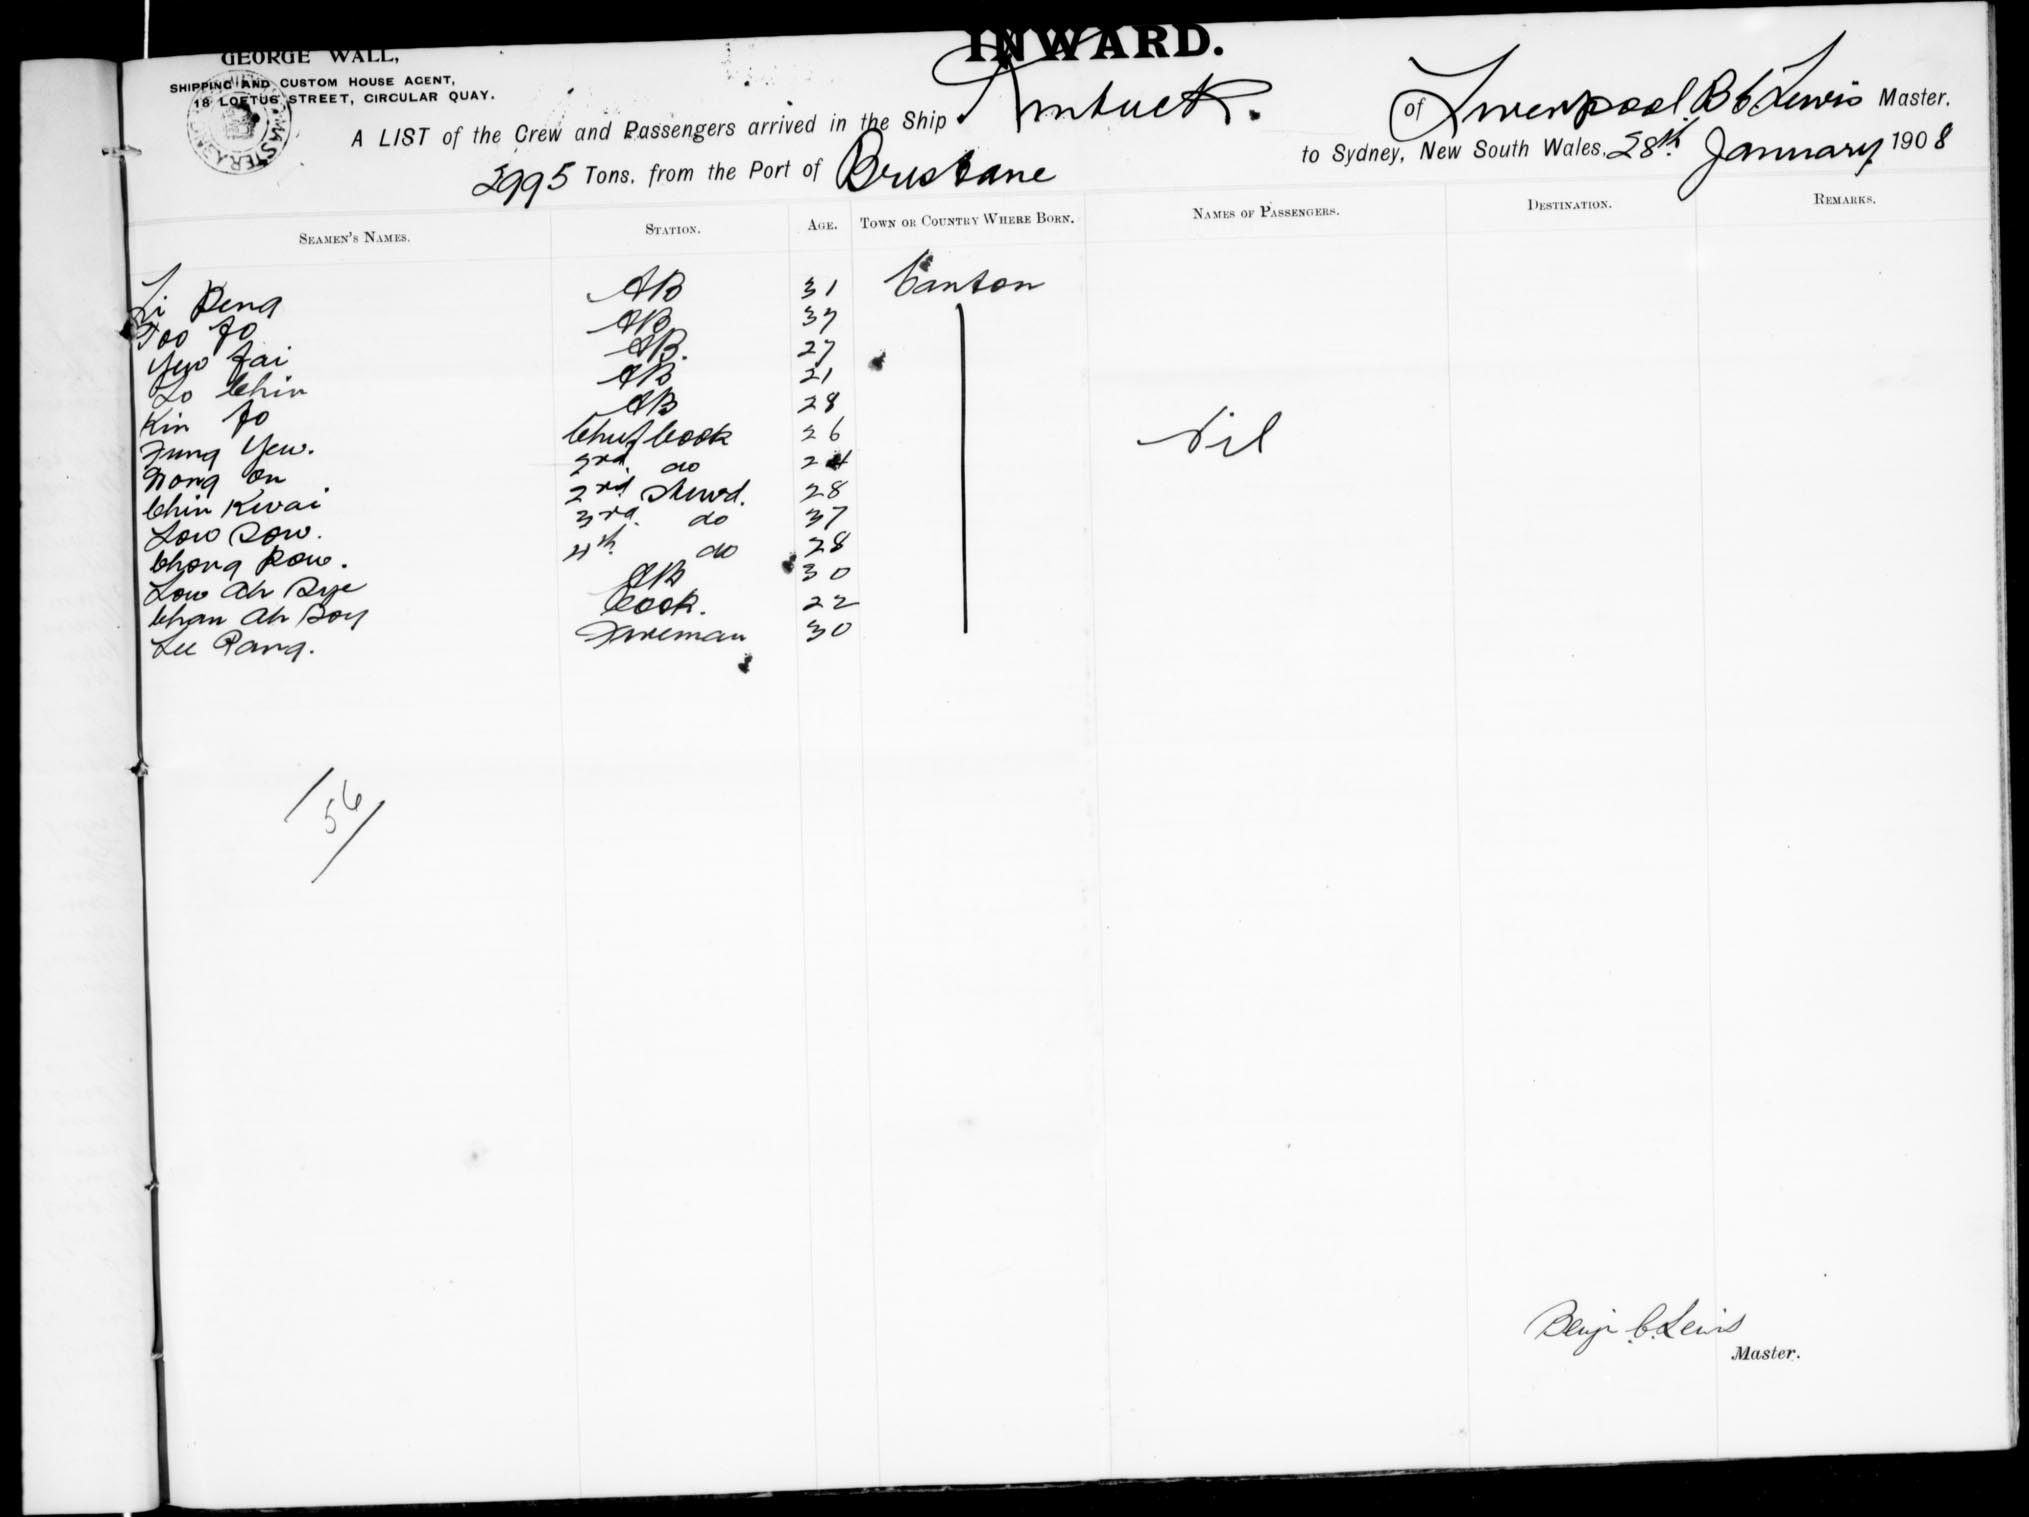 GEORGE WALL,
SHIPPING AND CUSTOM HOUSE AGENT,
18 LOFTUS STREET, CIRCULAR QUAY.
INWARD.
A LIST of the Crew and Passengers arrived in the Ship Kintuck. of Liverpool, B C Lewis Master,
2995 Tons, from the Port of Brisbane to Sydney, New South Wales, 28th January 1908
SEAMEN'S NAMES. STATION. AGE. TOWN OR COUNTRY WHERE BORN. NAMES OF PASSENGERS. DESTINATION. REMARKS.
Li Deng AB 31 Canton
Too Fo AB 37
Yew Fai AB. 27
Lo Chin AB 21
Kin Fo AB 28
Fung Yew. Chief Cook 26
Wong On 2nd do 24
Chin Kwai 2nd Stewd. 28
Low Sow. 3rd do 37
Chong Row. 4th do 28
Low Ah Sye AB 30
Chan Ah Soy Cook. 22
Lee Pang. Fireman 30
Nil
56
Benjn C. Lewis
Master.